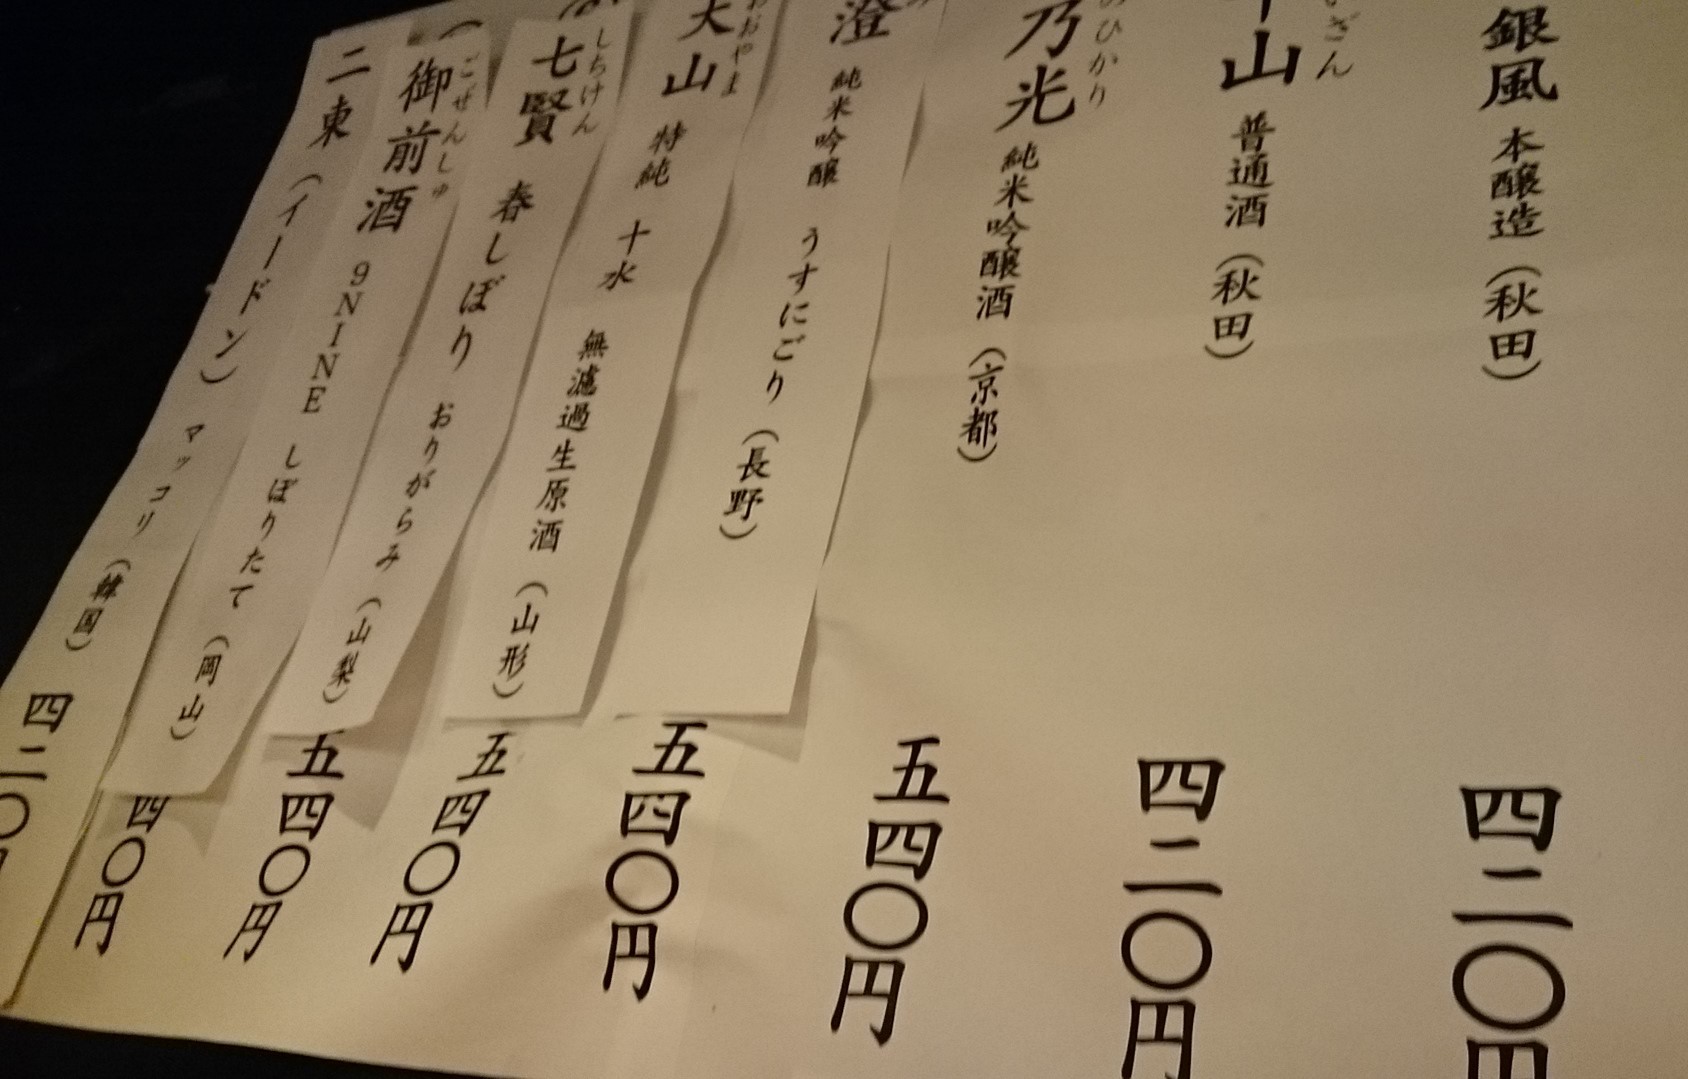 銀風 本醸造 (秋田) 四二〇円
山 普通酒 (秋田) 四二〇円
ざん
乃光 純米吟醸酒 (京都) 五四〇円
のひかり
澄 純米吟醸 うすにごり (長野) 五四〇円
大山 特純 十水 無濾過生原酒 (山形) 五四〇円
おおやま
七賢 春しぼり おりがらみ (山梨) 五四〇円
しちけん
御前酒 9NINE しぼりたて (岡山) 四〇円
ごぜんしゅ
二東 (イードン) マッコリ (韓国) 四二〇円